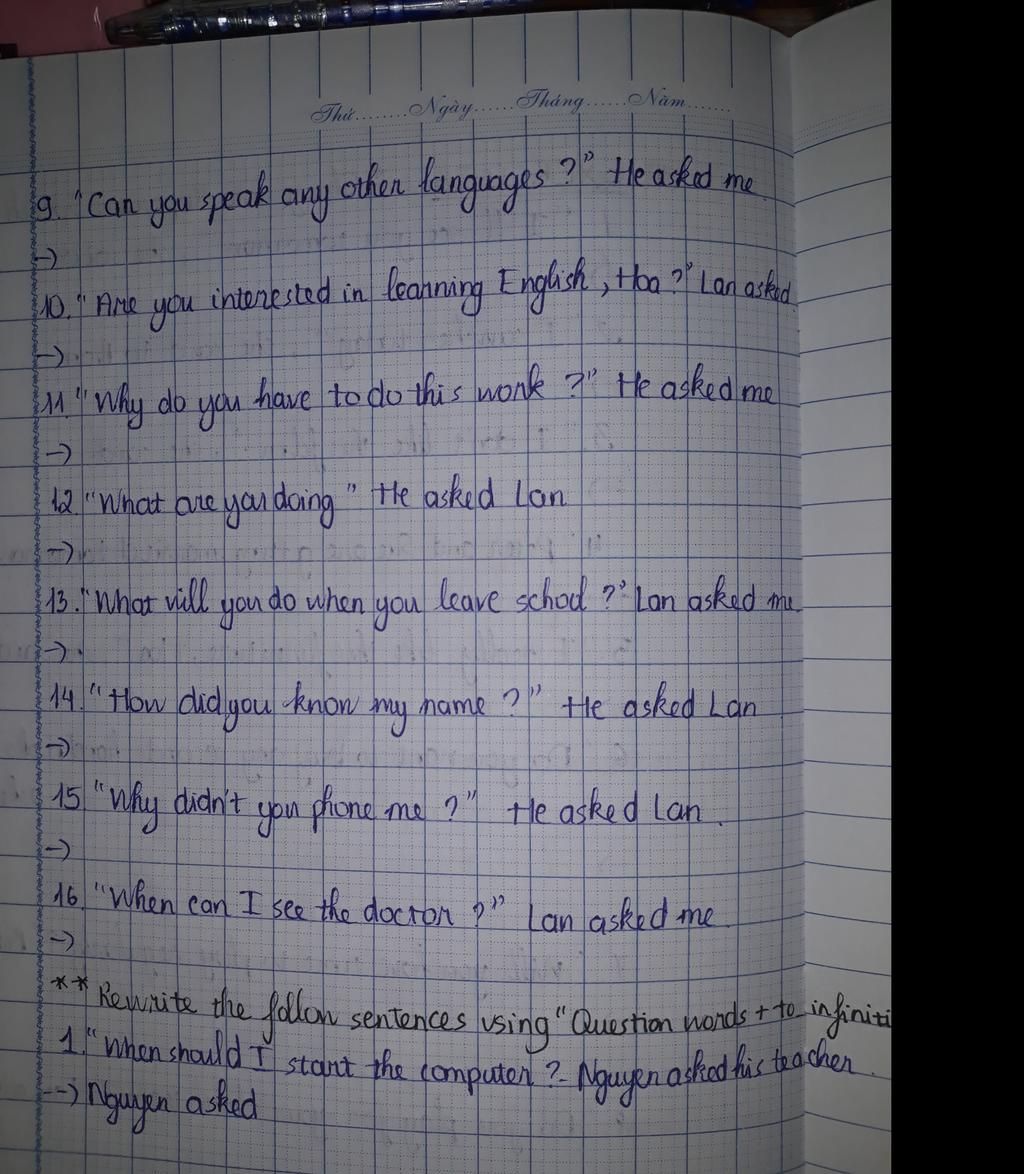 Thứ........Ngày......Tháng......Năm.......
9. "Can you speak any other languages ?" He asked me
→
10. "Are you interested in learning English, Hoa ?" Lan asked.
→
11. "Why do you have to do this work ?" He asked me
→
12 "What are you doing" He asked Lan
→
13. "What will you do when you leave school ?" Lan asked me.
→.
14. "How did you know my name ?" He asked Lan
→
15 "Why didn't you phone me ?" He asked Lan.
→
16. "When can I see the doctor ?" Lan asked me.
→
** Rewrite the follow sentences using "Question words + to infiniti
1. "When should I start the computer ?- Nguyen asked his teacher.
--> Nguyen asked